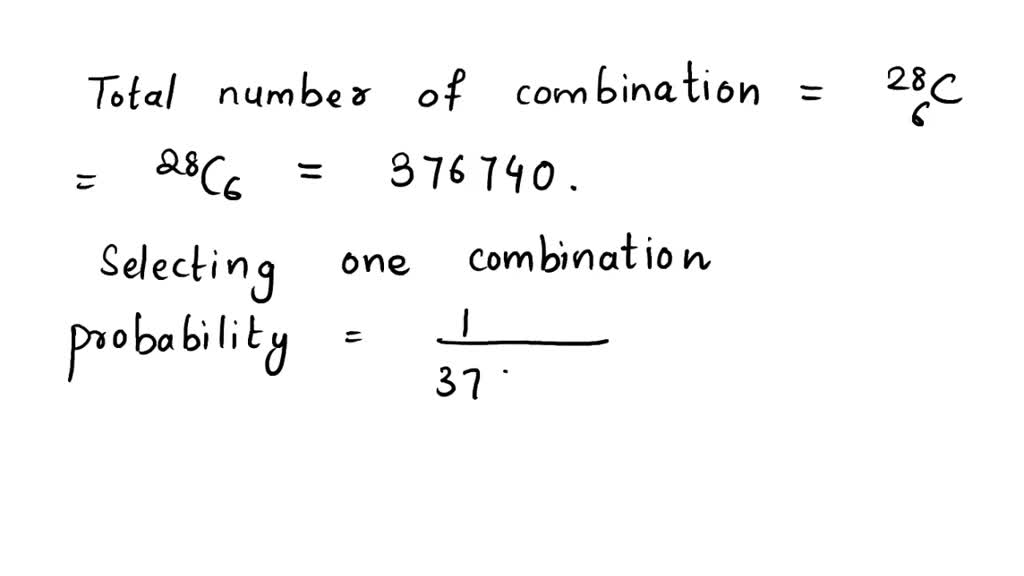 Total number of combination = ²⁸C₆
= ²⁸C₆ = 376740.
Selecting one combination
probability = 1/37